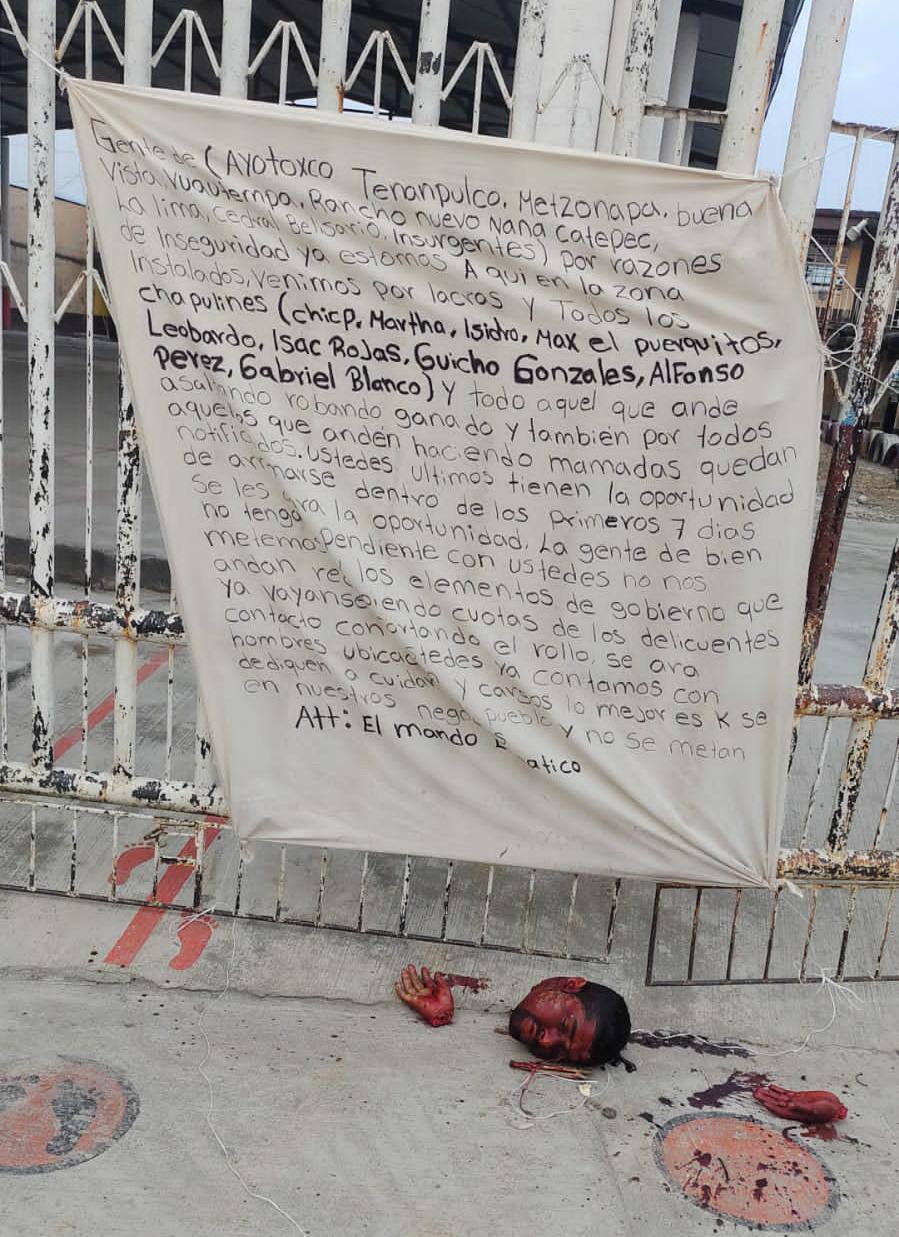 Gente de (Ayotoxco Tenanpulco, Metzonapa, buena
Vista, Vuautempa, Rancho nuevo Nana Catepec,
La lima, Cedral Belisario, Insurgentes) por razones
de Inseguridad ya estamos Aqui en la zona
Instalados, Venimos por lacras y Todos los
chapulines (chicp, Martha, Isidro, Max el puerquitos,
Leobardo, Isac Rojas, Guicho Gonzales, Alfonso
Perez, Gabriel Blanco) y todo aquel que ande
robando ganado y también por todos
que anden haciendo mamadas quedan
ustedes ultimos tienen la oportunidad
de dentro de los primeros 7 dias
se les la oportunidad. La gente de bien
no tenga pendiente con ustedes no nos
metemos los elementos de gobierno que
andan cuotas de los delicuentes
ya el rollo, se ara
contacto ya contamos con
hombres y lo mejor es k se
dediquen a cuidar pueblo y no se metan
en nuestros
Att: El mando